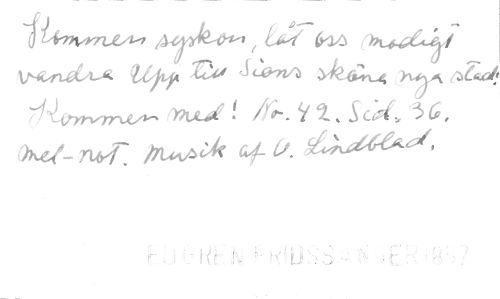 Kommen syskon, låt oss modigt
vandra Upp till Sions sköna nya stad!
Kommen med! No. 42. Sid. 36.
mel-not. Musik af O. Lindblad.
EDGREN FRIDSSÅNGER 1857